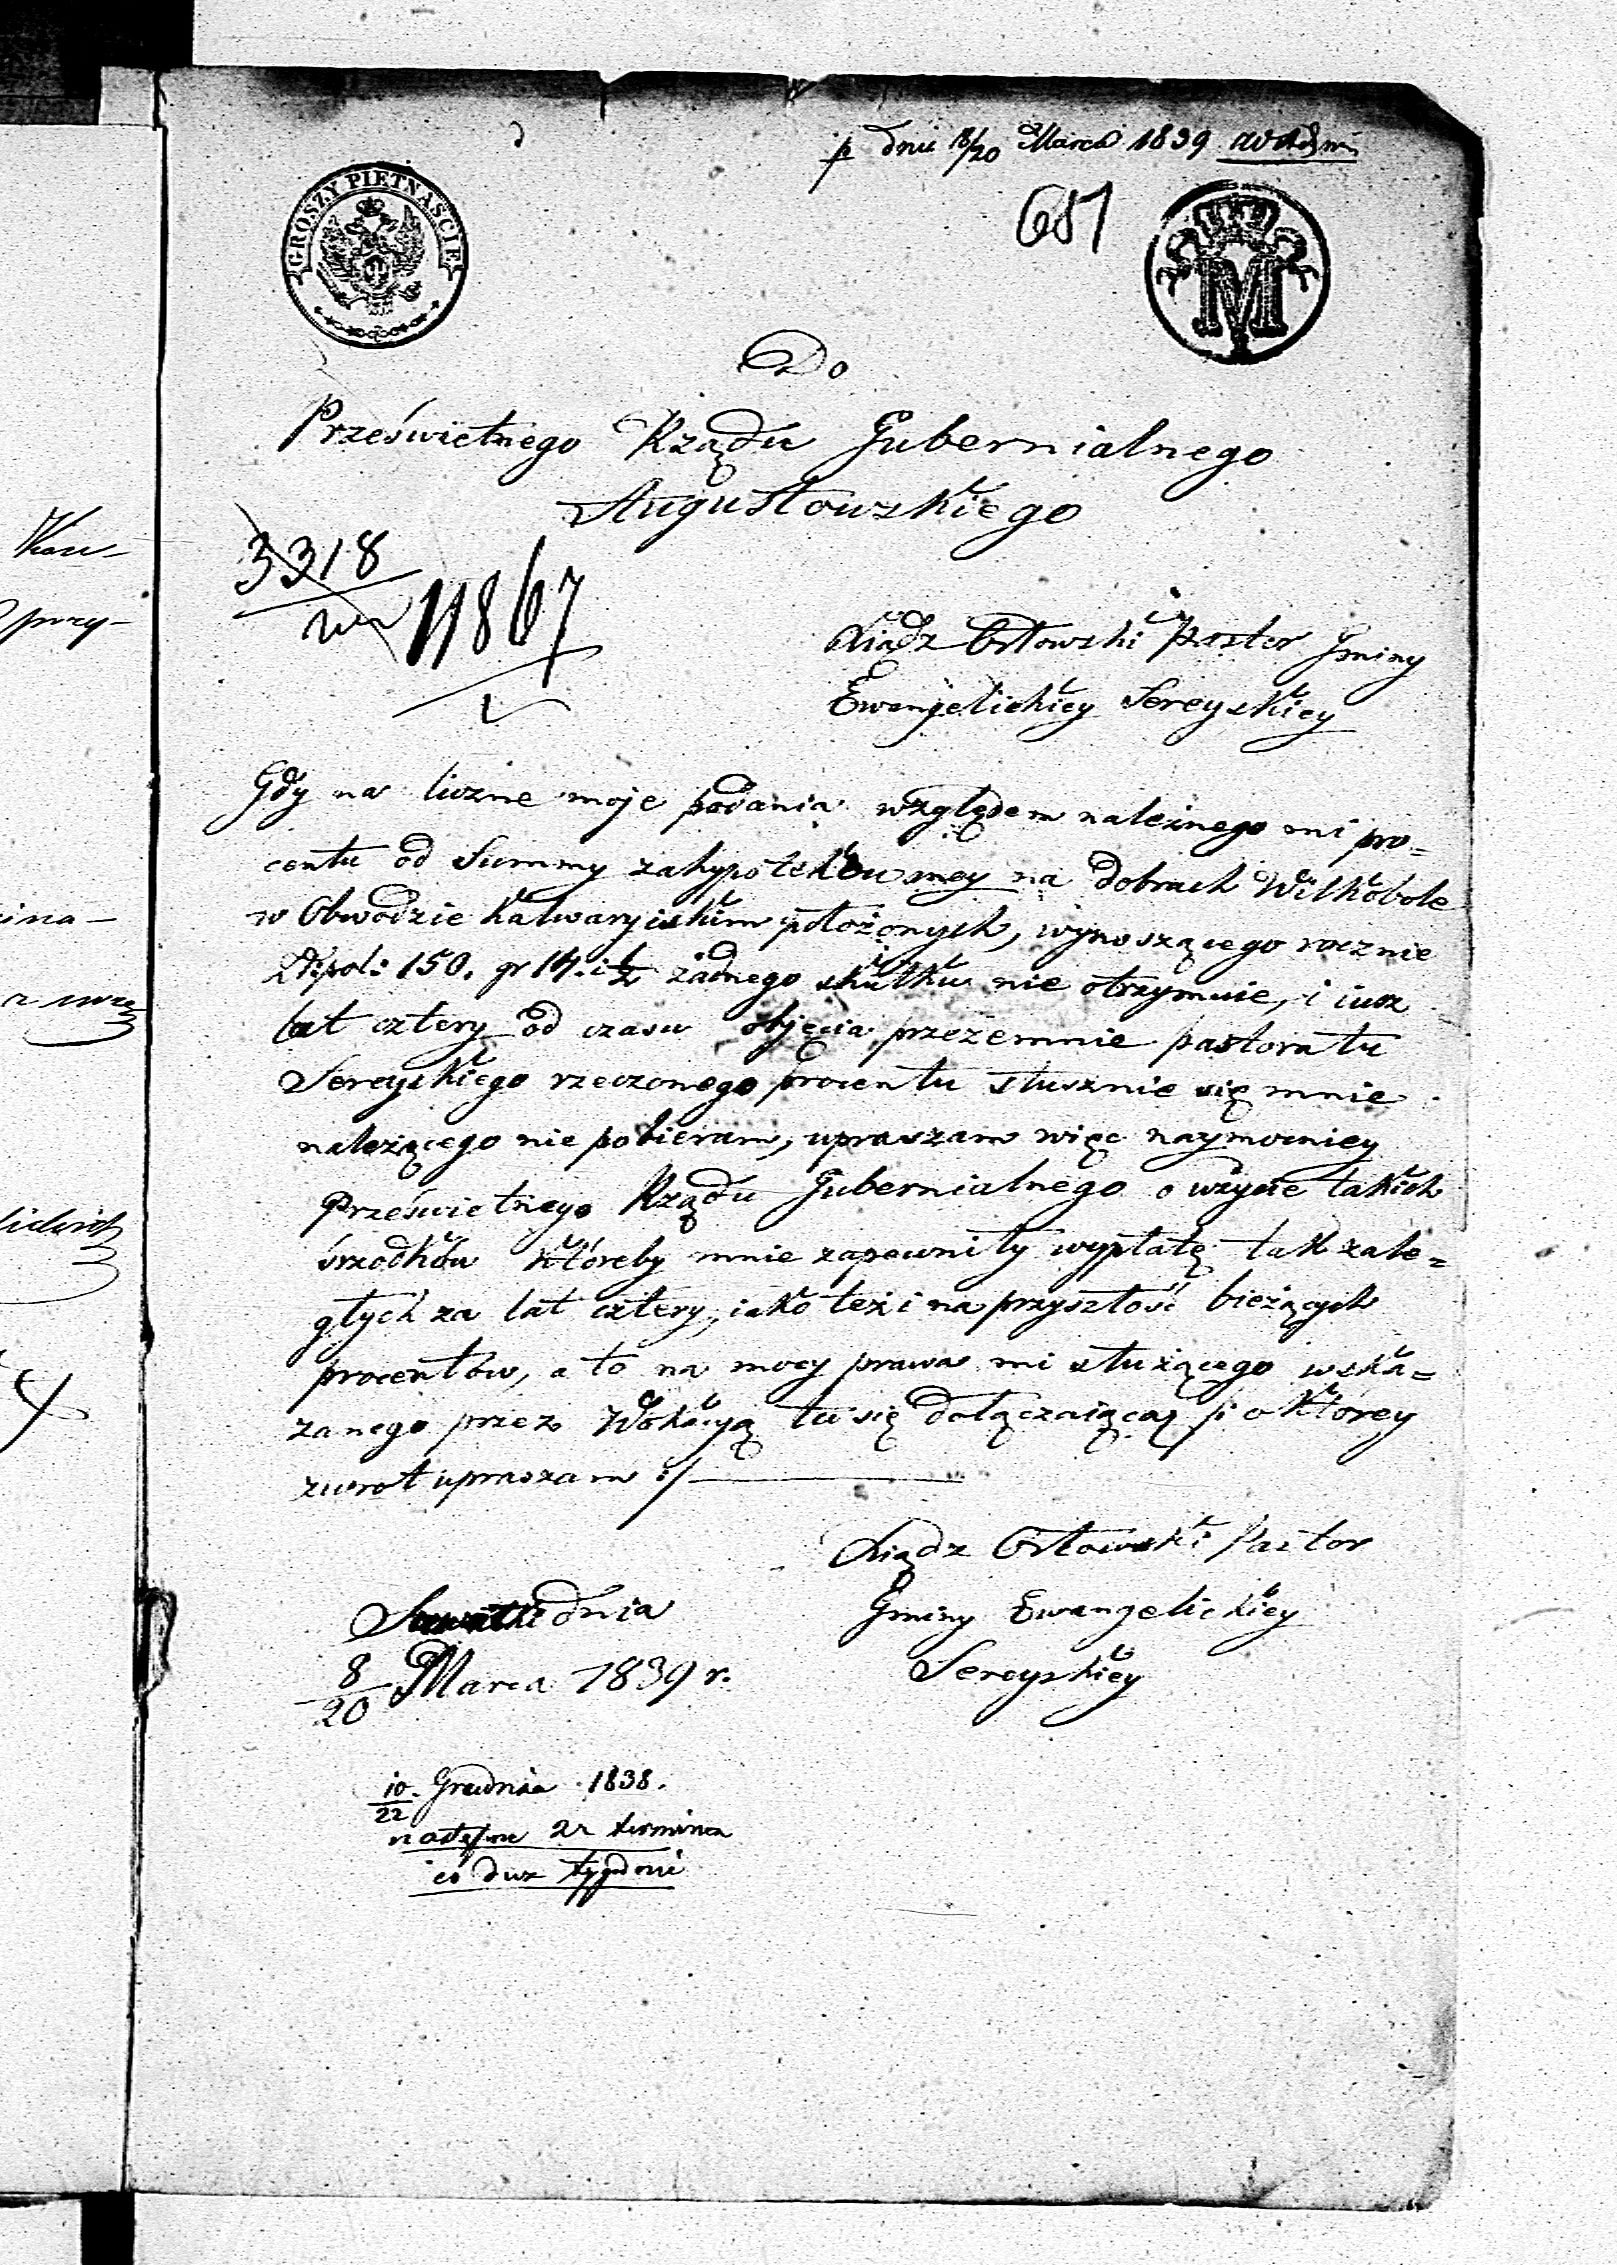 p dnia 8/20 Marca 1839
681
GROSZY PIĘTNAŚCIE
M
Do
Prześwietnego Rządu Gubernialnego
Augustowskiego
3318
11867
Xiądz Orłowski Pastor Gminy
Ewangelickiey Sereyskiey
Gdy na liczne moje podania względem należnego mi pro=
centu od Summy zahypotekowaney na dobrach Wilkobole
w Obwodzie Kalwaryiskim położonych, wynoszącego rocznie
Zł: pol: 150. gr 14. i ½ żadnego skutku nie otrzymuię, i iusz
lat cztery od czasu objęcia przezemnie pastoratu
Sereyskiego rzeczonego procentu słusznie się mnie
należącego nie pobieram, upraszam więc naymocniey
Prześwietnego Rządu Gubernialnego o użycie takich
środków któreby mnie zapewniły wypłatę tak zale=
głych za lat cztery, iako też i na przyszłość bieżących
procentów, a to na mocy prawa mi służącego wska=
zanego przez Wokacyą tu się dołączaiącą /: o którey
zwrot upraszam :/
Xiądz Orłowski Pastor
Gminy Ewangelickiey
Sereyskiey
Suwałki dnia
8/20 Marca 1839 r.
10/22 Grudnia 1838.
co dwa tygodnie
Kau-
przy-